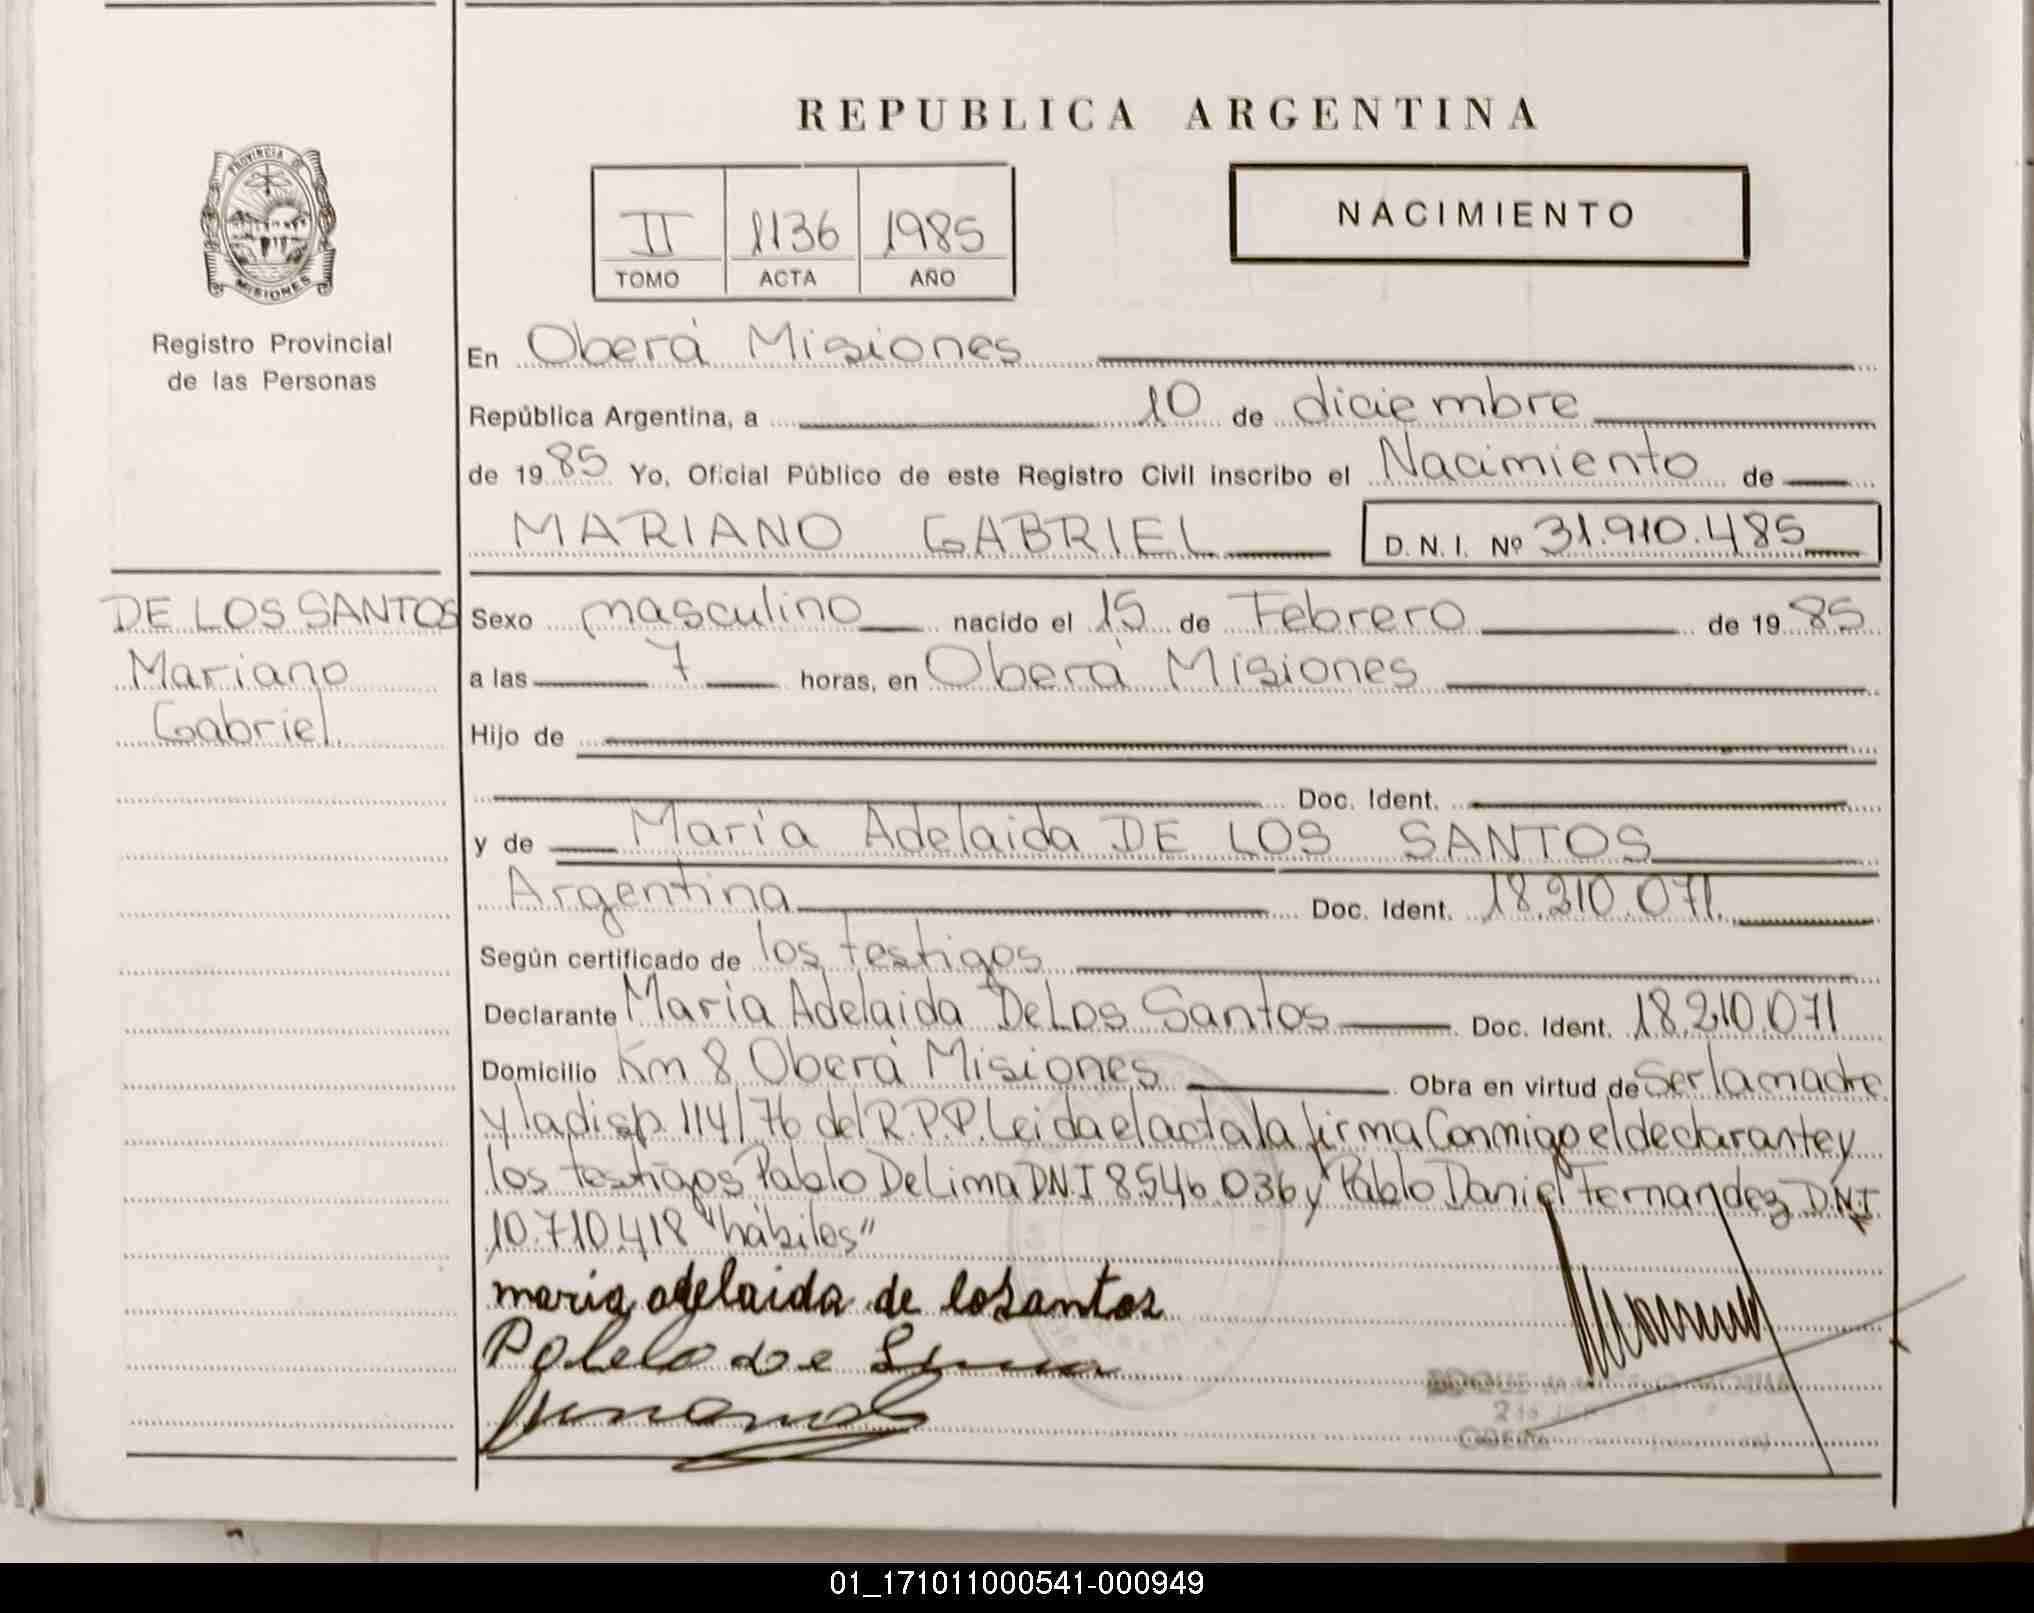 REPUBLICA ARGENTINA
PROVINCIA DE
MISIONES
Registro Provincial
de las Personas
II 1136 1985
TOMO ACTA AÑO
NACIMIENTO
En Oberá Misiones
República Argentina, a 10 de diciembre
de 1985 Yo, Oficial Público de este Registro Civil inscribo el Nacimiento de
MARIANO GABRIEL D.N.I. Nº 31.910.485
DE LOS SANTOS
Mariano
Gabriel
Sexo masculino nacido el 15 de Febrero de 1985
a las 7 horas, en Oberá Misiones
Hijo de
Doc. Ident.
y de María Adelaida DE LOS SANTOS
Argentina Doc. Ident. 18.210.071
Según certificado de los testigos
Declarante María Adelaida De Los Santos Doc. Ident. 18.210.071
Domicilio Km 8 Oberá Misiones Obra en virtud de Ser la madre
y la disp. 114/76 del R.P.P. Leida el acta la firma Conmigo el declarante y
los testigos Pablo De Lima DN.I 8.546.036 y Pablo Daniel Fernandez D.N.I
10.710.418 "hábiles"
maria adelaida de losantos
Pablo de Lima
01_171011000541-000949